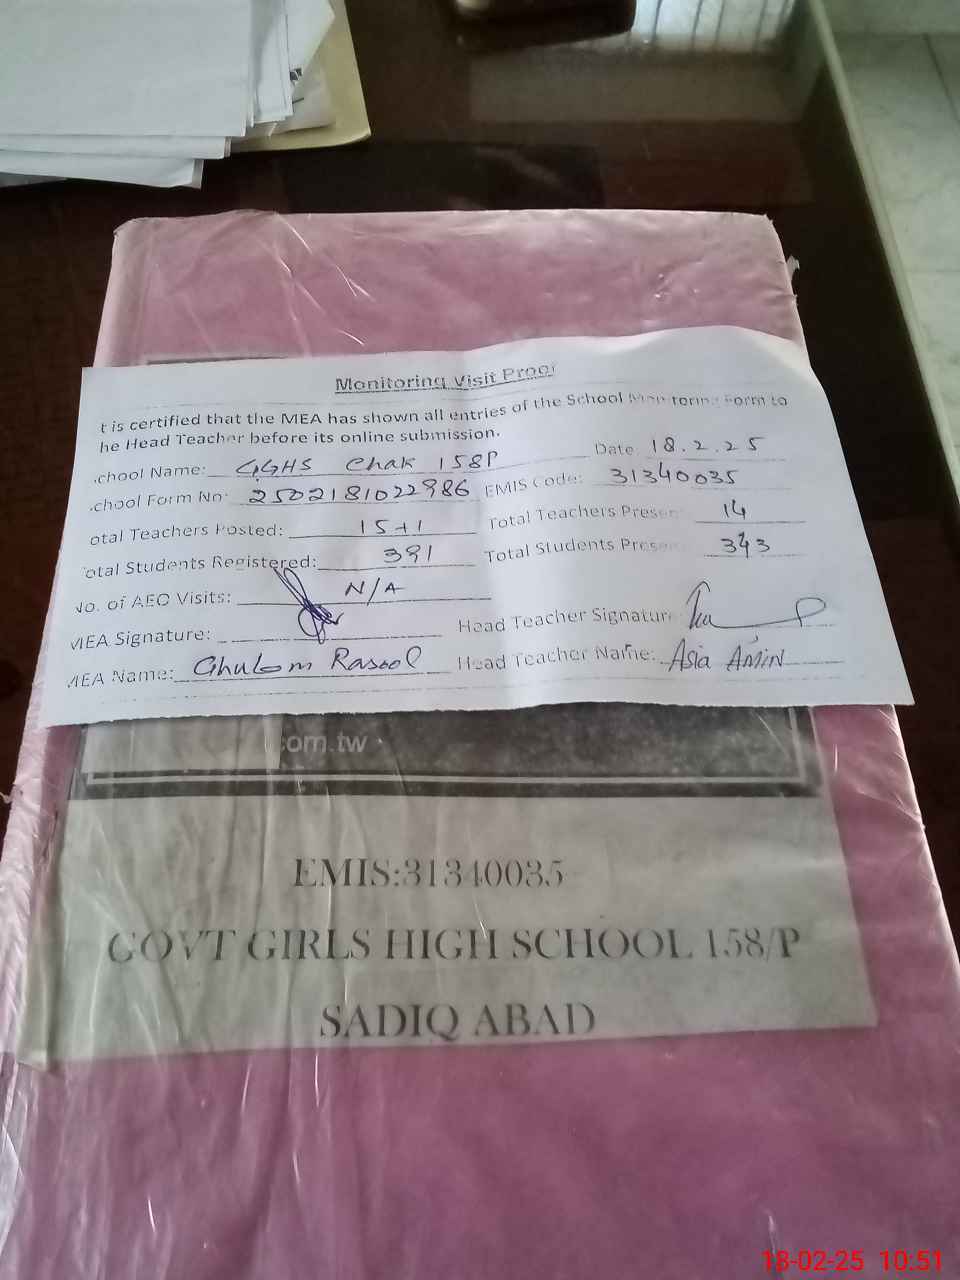 Monitoring Visit Proof
t is certified that the MEA has shown all entries of the School Monitoring Form to
he Head Teacher before its online submission.
chool Name: GGHS Chak 158P Date 18.2.25
chool Form No: 2502181022986 EMIS Code: 31340035
otal Teachers Posted: 15+1 Total Teachers Presen 14
otal Students Registered: 391 Total Students Presen 343
No. of AEO Visits: N/A
MEA Signature: Head Teacher Signatur
MEA Name: Ghulom Rasool Head Teacher Name: Asia Amin
.com.tw
EMIS:31340035
GOVT GIRLS HIGH SCHOOL 158/P
SADIQ ABAD
18-02-25 10:51